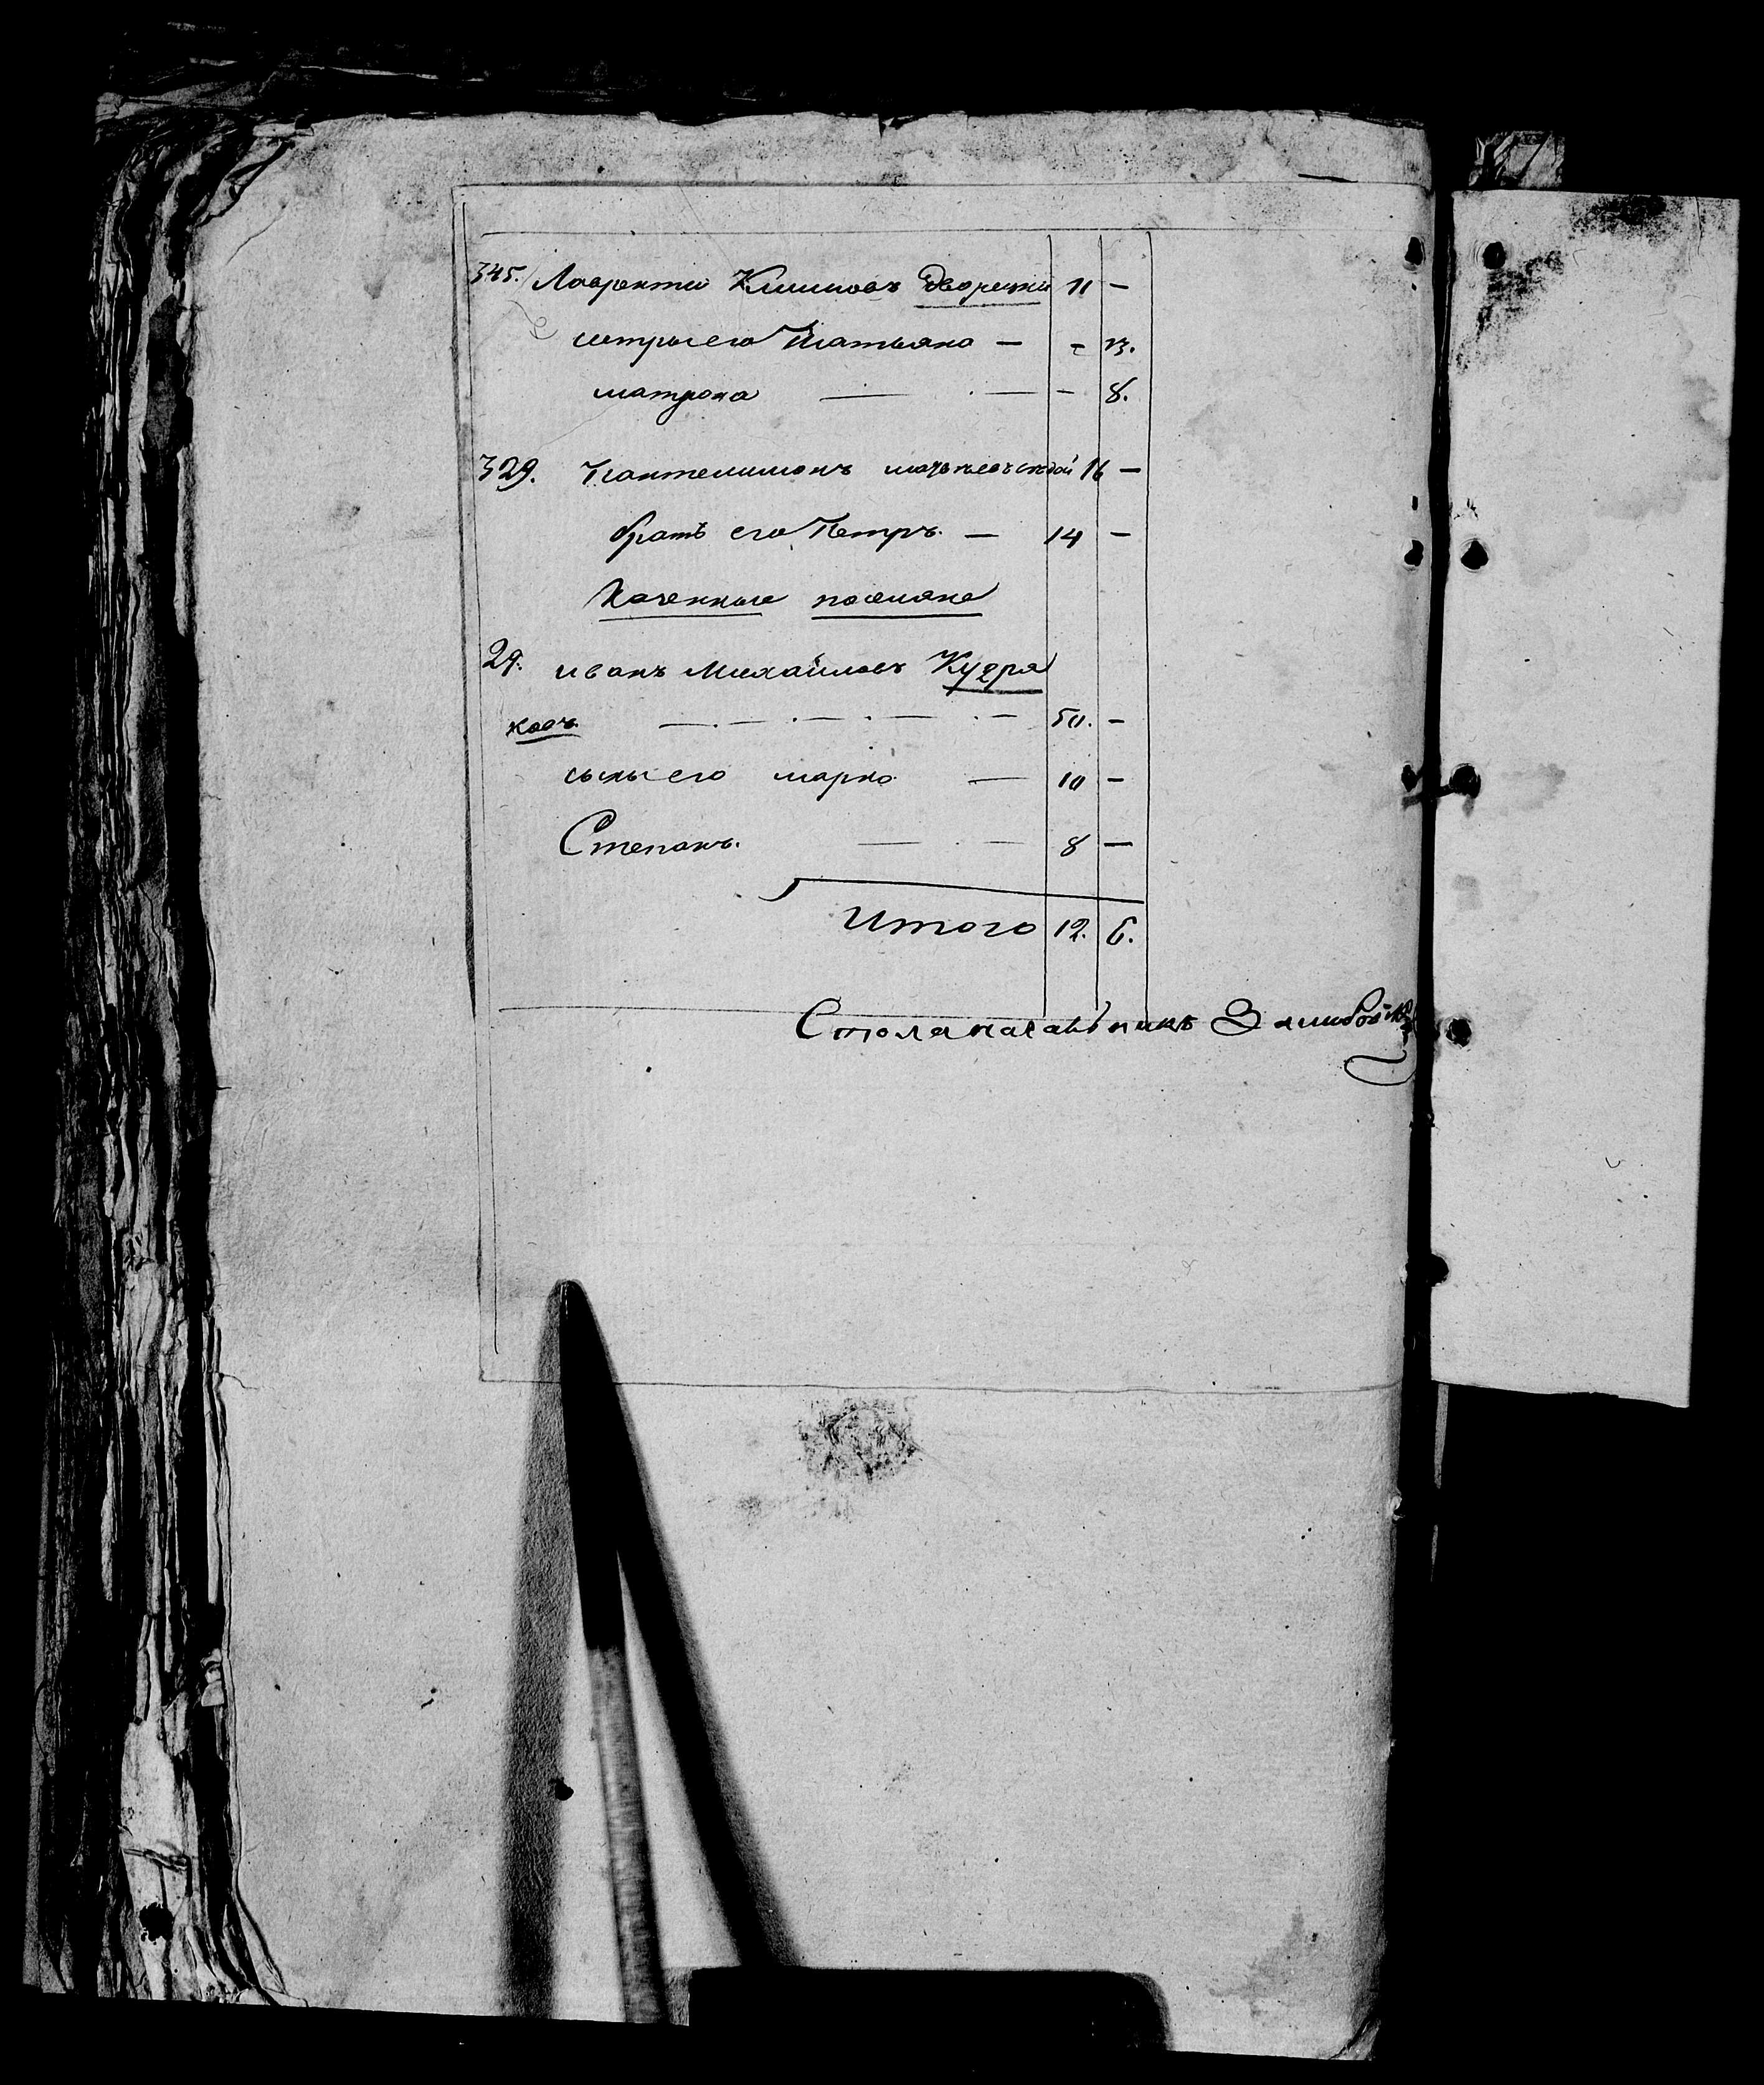 345. Лаврентий Климовъ Дворецкий 11 —
сестры его Татьяна — - 13.
матрона — · — - 8.
329. Пантелимонъ 16 —
братъ его Петръ. — 14 —
Казенные поселяне
29. иванъ Михайловъ Кудря
ковъ. — . — . — . — . — 50. —
сыны его марко — 10 —
Степанъ. — . — 8 —
Итого 12. 6.
Столоначальникъ